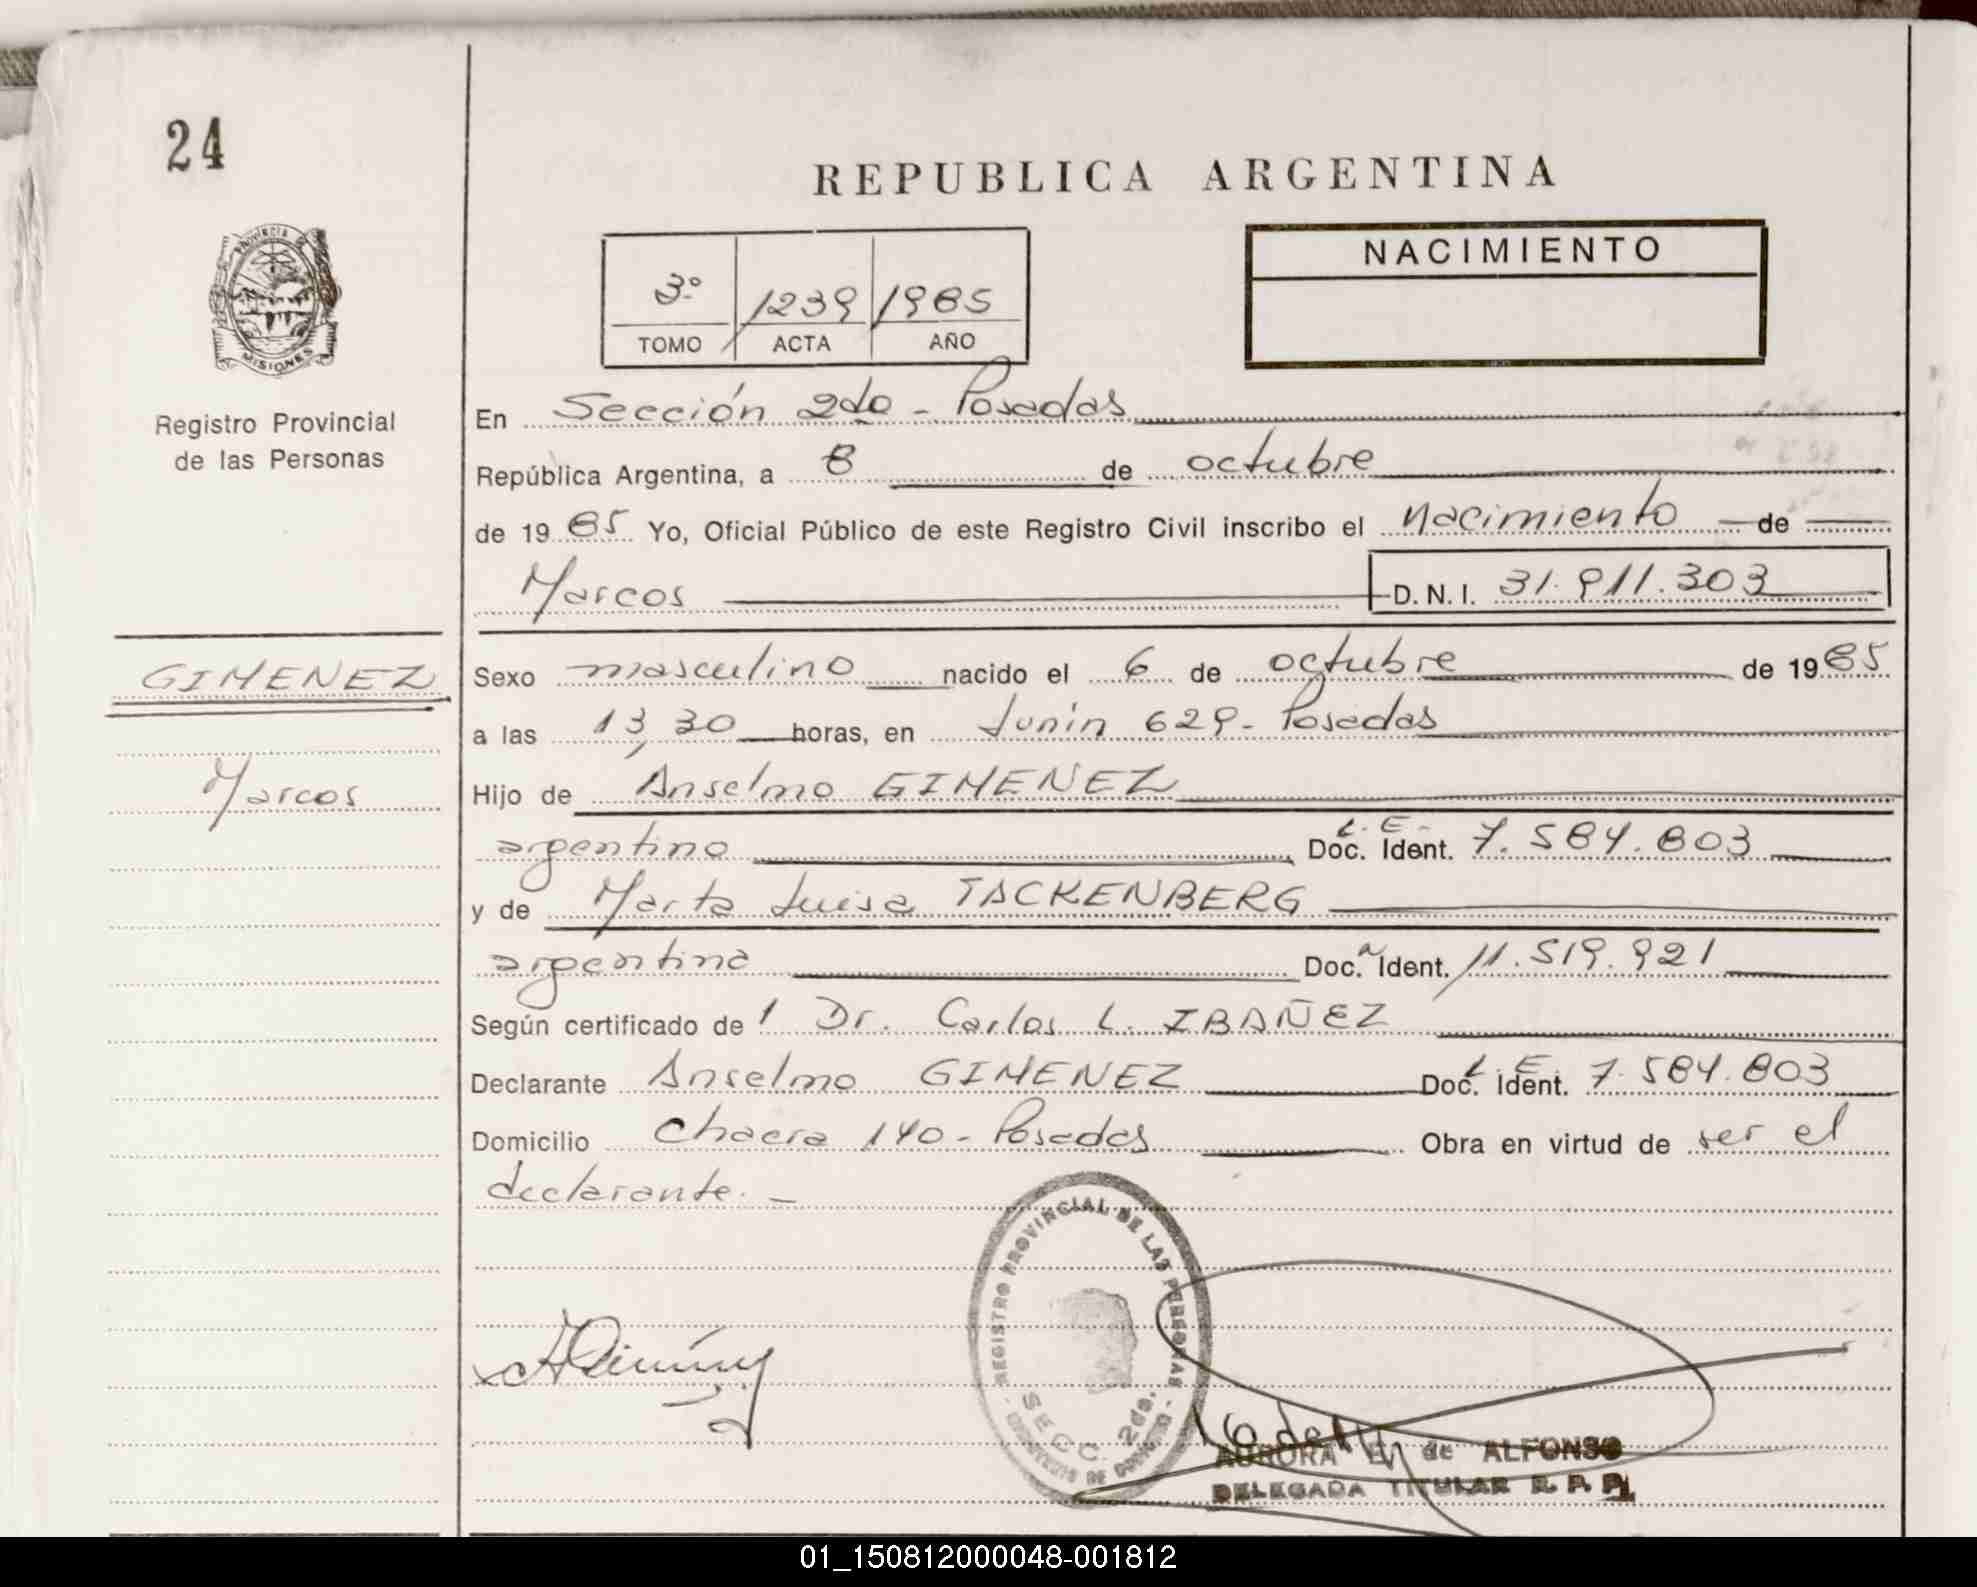 24
REPUBLICA ARGENTINA
PROVINCIA DE
MISIONES
Registro Provincial
de las Personas
3º 1239 1985
TOMO ACTA AÑO
NACIMIENTO
En Sección 2da - Posadas
República Argentina, a 8 de octubre
de 1985 Yo, Oficial Público de este Registro Civil inscribo el nacimiento de
Marcos D.N.I. 31.911.303
GIMENEZ
Marcos
Sexo masculino nacido el 6 de octubre de 1985
a las 13,30 horas, en Junín 629 - Posadas
Hijo de Anselmo GIMENEZ
argentino Doc. Ident. L.E. 7.584.803
y de Marta Luisa TACKENBERG
argentina Doc. Ident. 11.519.921
Según certificado de 1 Dr. Carlos L. IBAÑEZ
Declarante Anselmo GIMENEZ Doc. Ident. L.E. 7.584.803
Domicilio Chacra 140 - Posadas Obra en virtud de ser el
declarante. -
REGISTRO PROVINCIAL DE LAS PERSONAS
SECC. 2da.
AURORA de ALFONSO
DELEGADA TITULAR R. P. P.
01_150812000048-001812